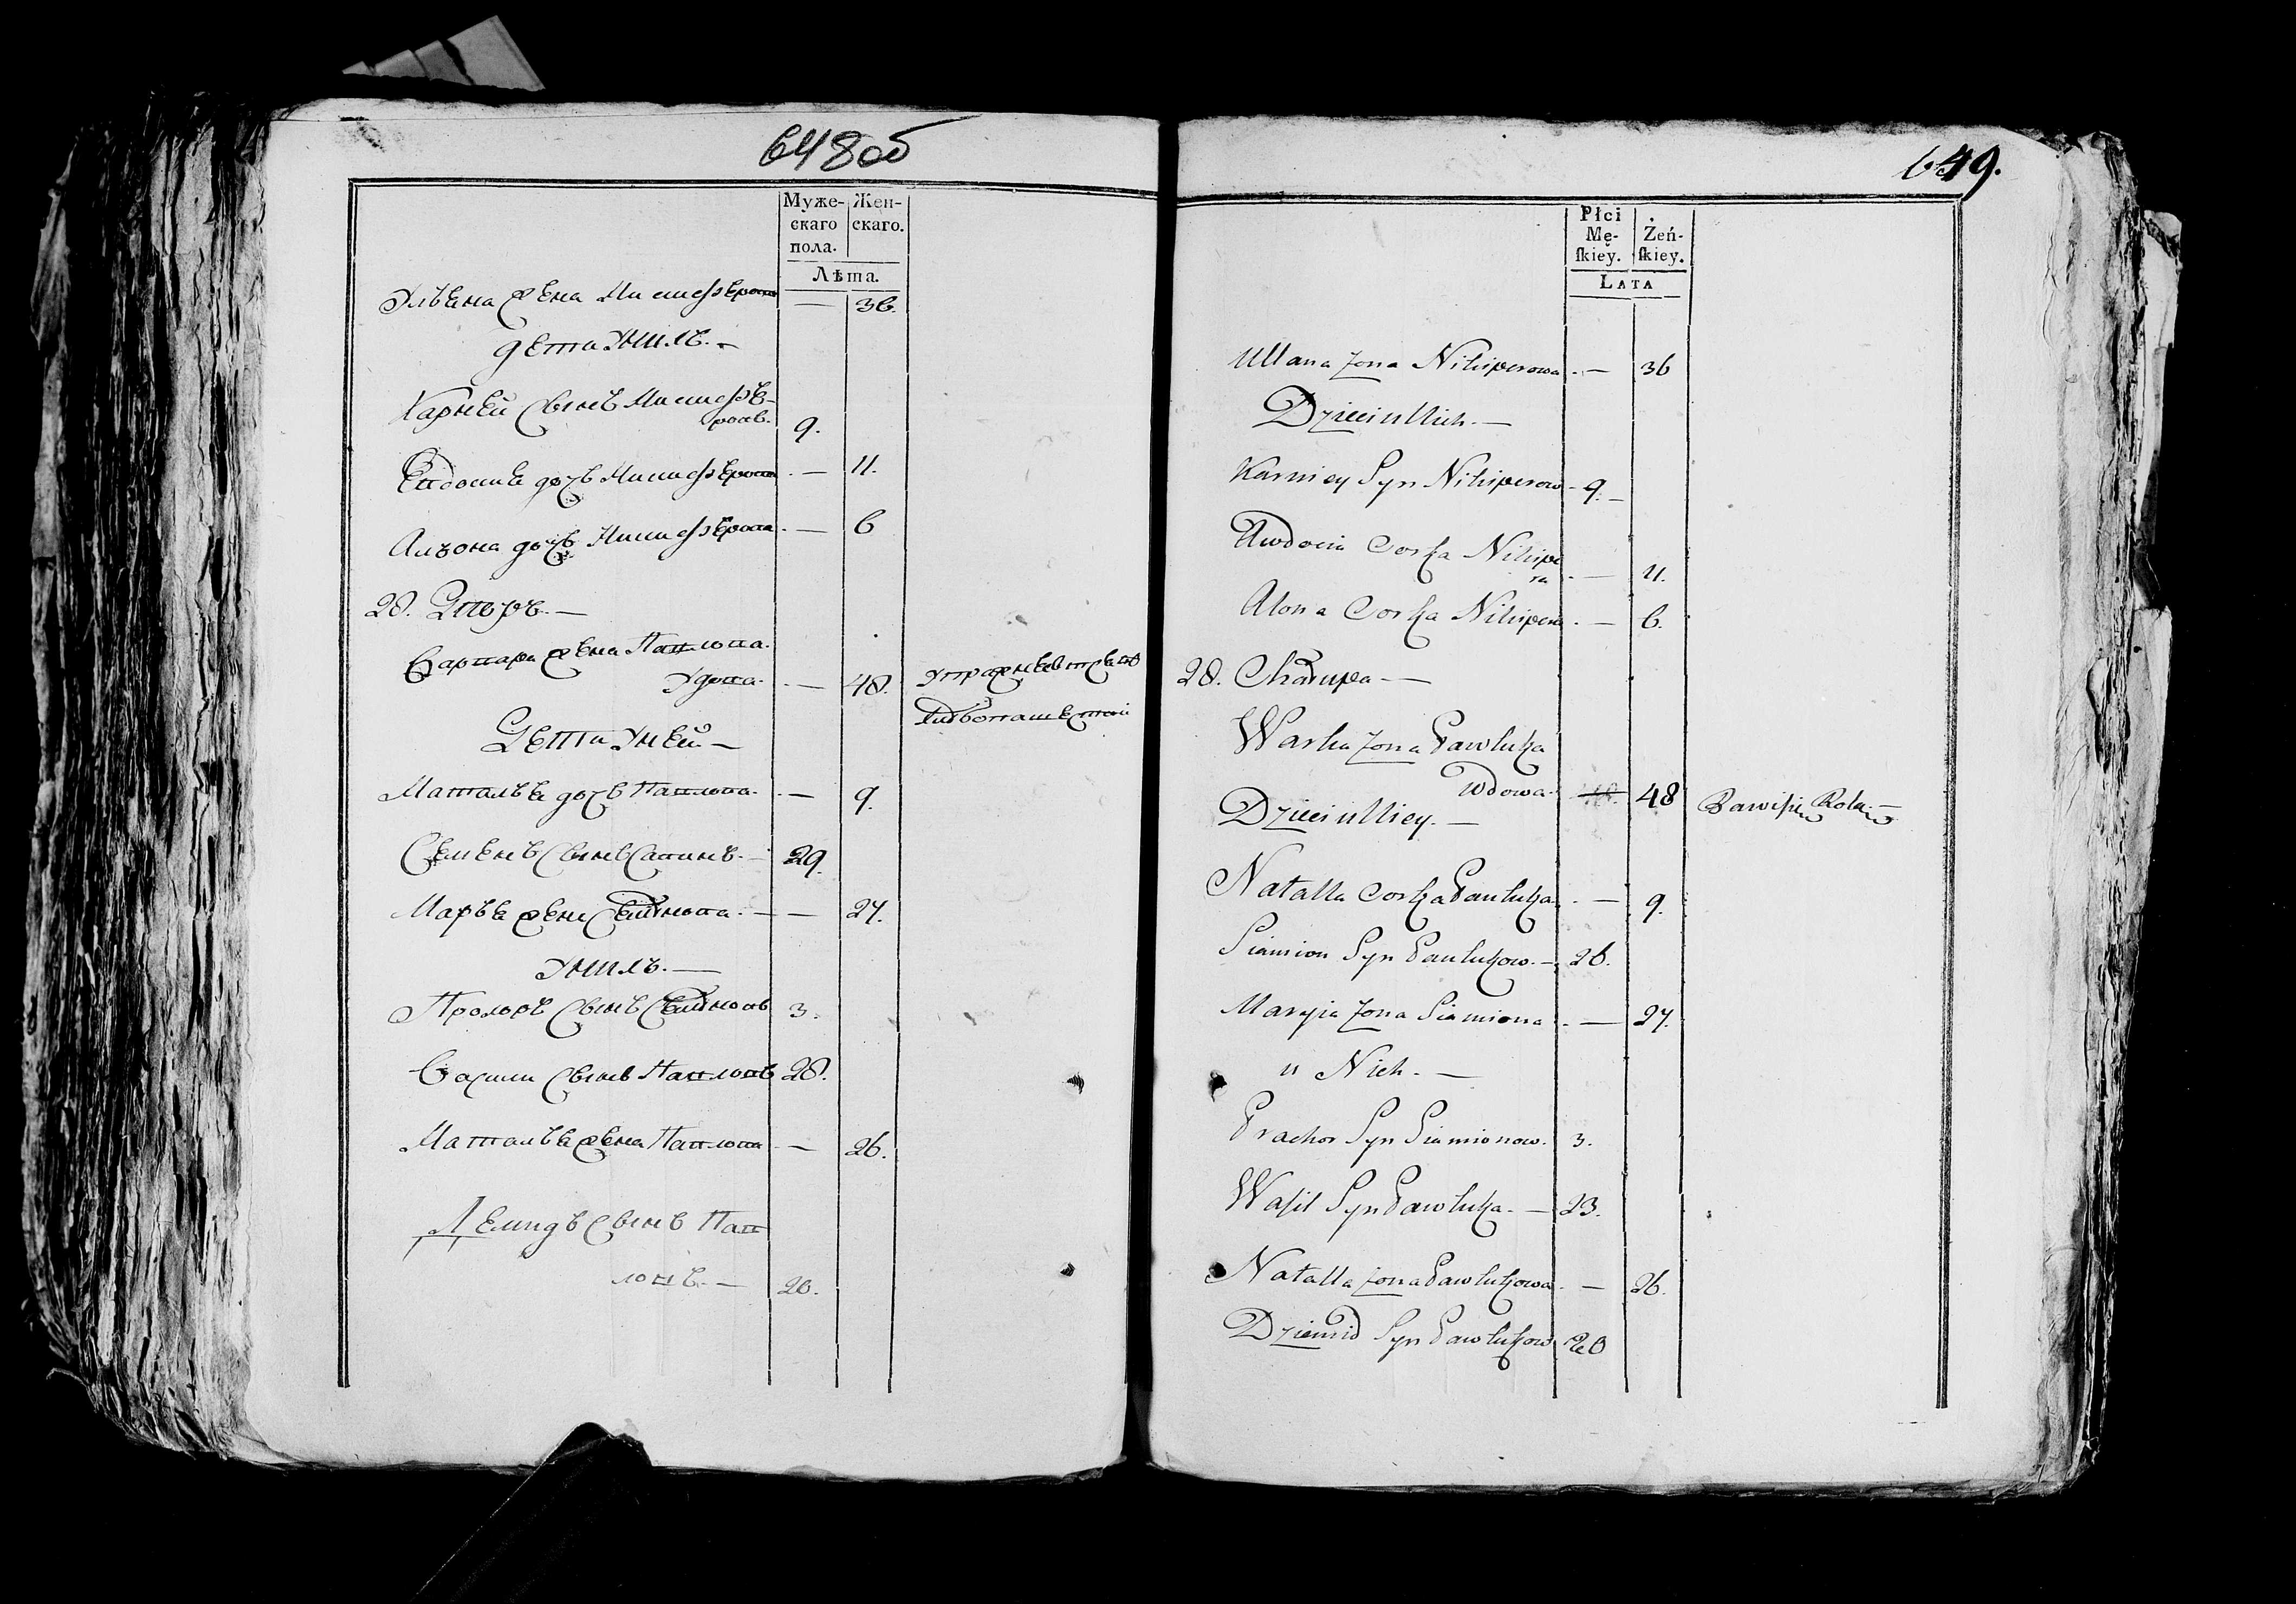 648об
Муже-
скаго
пола.
Жен-
скаго.
Лѣта.
Ульяна жена — 36.
дети у нихъ. —
Карней сынъ 9.
Евдокия дочь — 11.
Алёона дочь — 6
28. Дворъ. —
Варвара жена Павлова.
удова. — 48.
Дети у ней —
Наталья дочь Павлова. — 9.
Семенъ сынъ 29.
Марья жена Семёнова. — 27.
у нихъ. —
Прохоръ сынъ Семёновъ 3.
Василий сынъ Павловъ 28.
Наталья жена Павлова — 26.
Демидъ сынъ Пав
ловъ. — 20.
649.
Płci
Mę-
ſkiey.
Żeń-
ſkiey.
LATA
Ullana Zona Nikiperowa — 36
Dzieci u Nich. —
Karniey Syn Nikiperow 9. —
Awdocia Corka Nikipe
ra — 11.
Alona Corka Nikipera — 6.
28. Chałupa —
Warka Zona Pawluka
Wdowa. 48
Bawi się Rolą. —
Dzieci u Niey. —
Natalla Corka Pauluka. — 9.
Siamion Syn Paulukow. — 26.
Maryia Zona Siamiona — 27.
u Nich. —
Prachor Syn Siamionow. 3.
Waſil Syn Pawluka. — 23.
Natalla Zona Pawlukowa. — 26.
Dziemid Syn Pawlukow 20